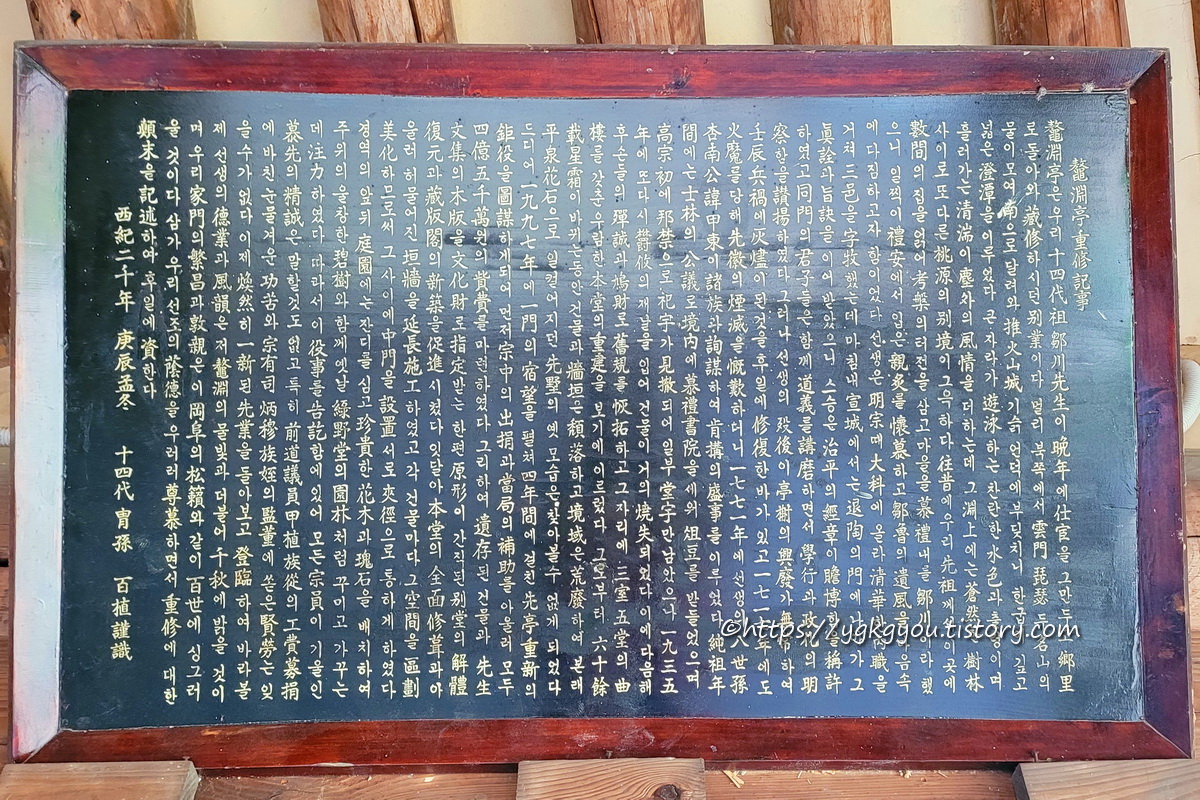 鰲淵亭重修記事
鰲淵亭은우리十四代祖鄒川先生이晩年에仕宦을그만두고鄕里
로돌아와藏修하시던別業이다 멀리북쪽에서雲門琵瑟두名山의
물이모여南으로달려와推火山城기슭언덕에부딪치니 한굽이깊고
넓은澄潭을이루었다 큰자라가遊泳하는찬란한水色과흥이며
흘러가는淸湍이塵外의風情을더하는데그淵上에는蒼然한樹林
사이로또다른桃源의別境이그윽하다往昔에우리先祖께서이곳에
數間의집을얽어考槃의터전을삼고마을을慕禮내를鄒川이라했
으니 일찍이禮安에서입은親炙를懷慕하고鄒魯의遺風을마음속
에다짐하고자함이었다先生은明宗때大科에올라淸華職을
거쳐三邑을字牧했는데마침내宣城에서는退陶의門에나아가그
眞詮과旨訣을이어받았으니스승은治平의經章이贍博함을稱許
하였고同門의君子들은함께道義를講磨하면서 學行과政化의明
察함을讚揚하였다그러나先生의 歿後이亭榭의興廢가無常하여
壬辰兵禍에灰燼이된것을후일에修復한바가있고一七一七年에도
火魔를당해先徽의煙滅을慨歎하더니一七七一年에先生의 世孫
杏南公諱甲東이諸族과詢謀하여肯構의盛事를이루었다純祖年
間에는士林의公議로境內에慕禮書院을세워俎豆를받들었으며
高宗初에邦禁으로祀宇가見撤되어일부堂宇만남았으나一九三五
年에또다시鬱攸의재난을입어건물이거의燒失되었다이에다음해
후손들의殫誠과鳩財로舊規를恢拓하고그자리에三室五堂의曲
樓를갖춘우람한本堂의重建을보기에이르렀다 그로부터六十餘
載星霜이바뀌는동안건물과牆垣은頹落하고境域은荒廢하여본래
平泉花石으로일컬어지던先野의옛모습은찾아볼수없게되었다
드디어一九九七年에一門의宿望을펼쳐四年間에걸친先亭重新의
鉅役을圖謀하게되어먼저宗中의出捐과當局의補助를아울러모두
四億五千萬원의費貲를마련하였다 그리하여 遺存된건물과先生
文集의木版을文化財로指定받는한편原形이간직된別堂의解體
復元과藏版閣의新築을促進시켰다잇달아本堂의全面修葺과아
울러허물어진垣牆을延長施工하였고각건물마다그空間을區劃
美化하므로써 그사이에中門을設置서로夾徑으로통하게하였다
경역의앞뒤庭園에는잔디를심고珍貴한花木과瑰石을배치하여
주위의울창한碧樹와함께옛날綠野堂의園林처럼꾸미고가꾸는
데注力하였다 따라서이役事를告訖함에있어모든宗員이기울인
慕先의精誠은말할것도없고특히前道議員甲植族從의工費募捐
에바친눈물겨운功勞와宗有司炳穆族姪의監董에쏟은賢勞는잊
을수가없다이제煥然히一新된先業을돌아보고登臨하여바라볼
제 선생의德業과風韻은저鰲淵의물빛과더불어千秋에밝을것이
며우리家門의繁昌과敦親은이岡阜의松籟와같이百世에싱그러
울것이다삼가우리선조의蔭德을우러러尊慕하면서重修에대한
顚末을記述하여후일에資한다
西紀二千年 庚辰孟冬 十四代冑孫 百植謹識
©https://ygkgyou.tistory.com